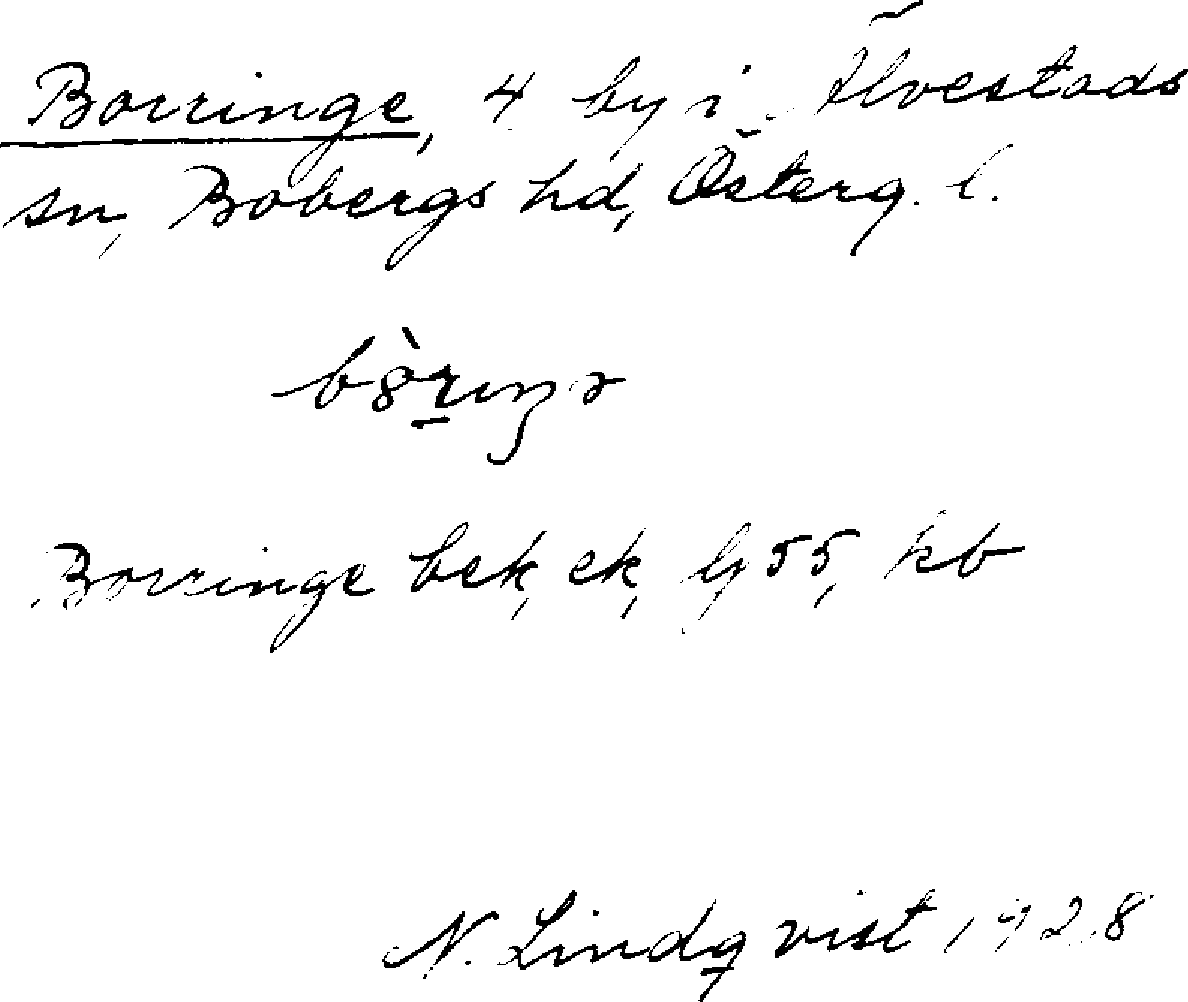 Borringe, 4 by i Älvestads
sn, Bobergs hd, Österg. l.
Borringe bek, ek, lj 55, kb
N. Lindqvist 1928